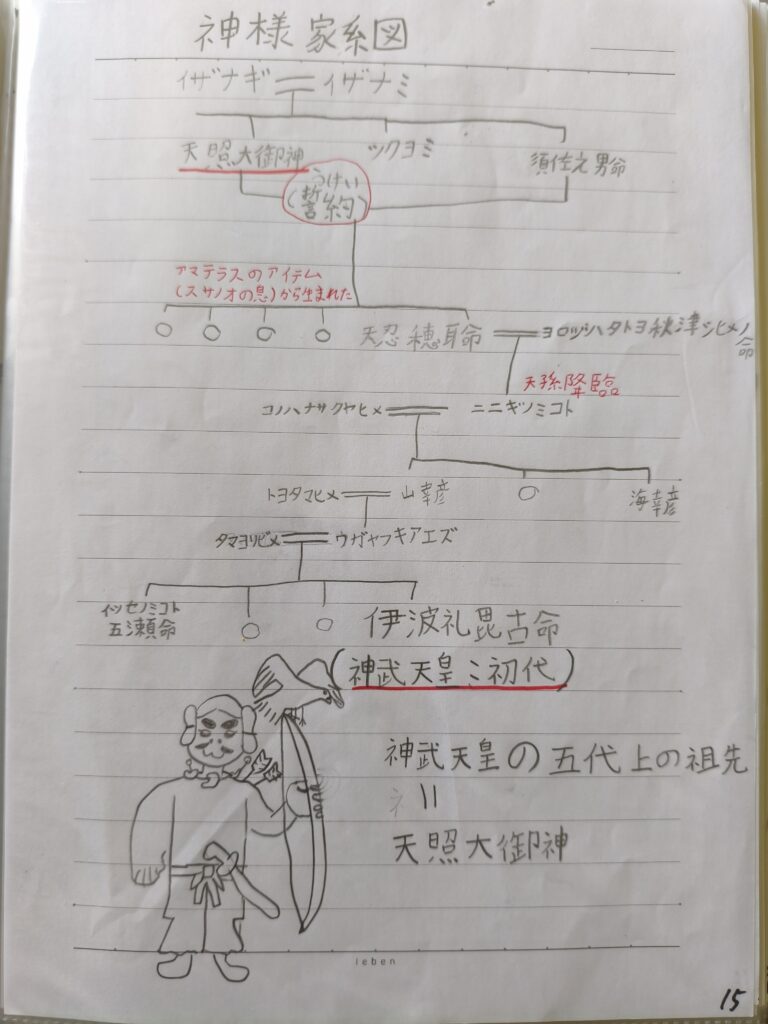 神様家系図
イザナギ イザナミ
天照大御神 ツクヨミ 須佐之男命
うけい
(誓約)
アマテラスのアイテム
(スサノオの息)から生まれた
天忍穂耳命 ヨロヅハタトヨ秋津シヒメノ命
天孫降臨
コノハナサクヤヒメ ニニギノミコト
トヨタマヒメ 山幸彦 海幸彦
タマヨリビメ ウガヤフキアエズ
イツセノミコト
五瀬命
伊波礼毘古命
(神武天皇:初代)
神武天皇の五代上の祖先
天照大御神
ieben
15